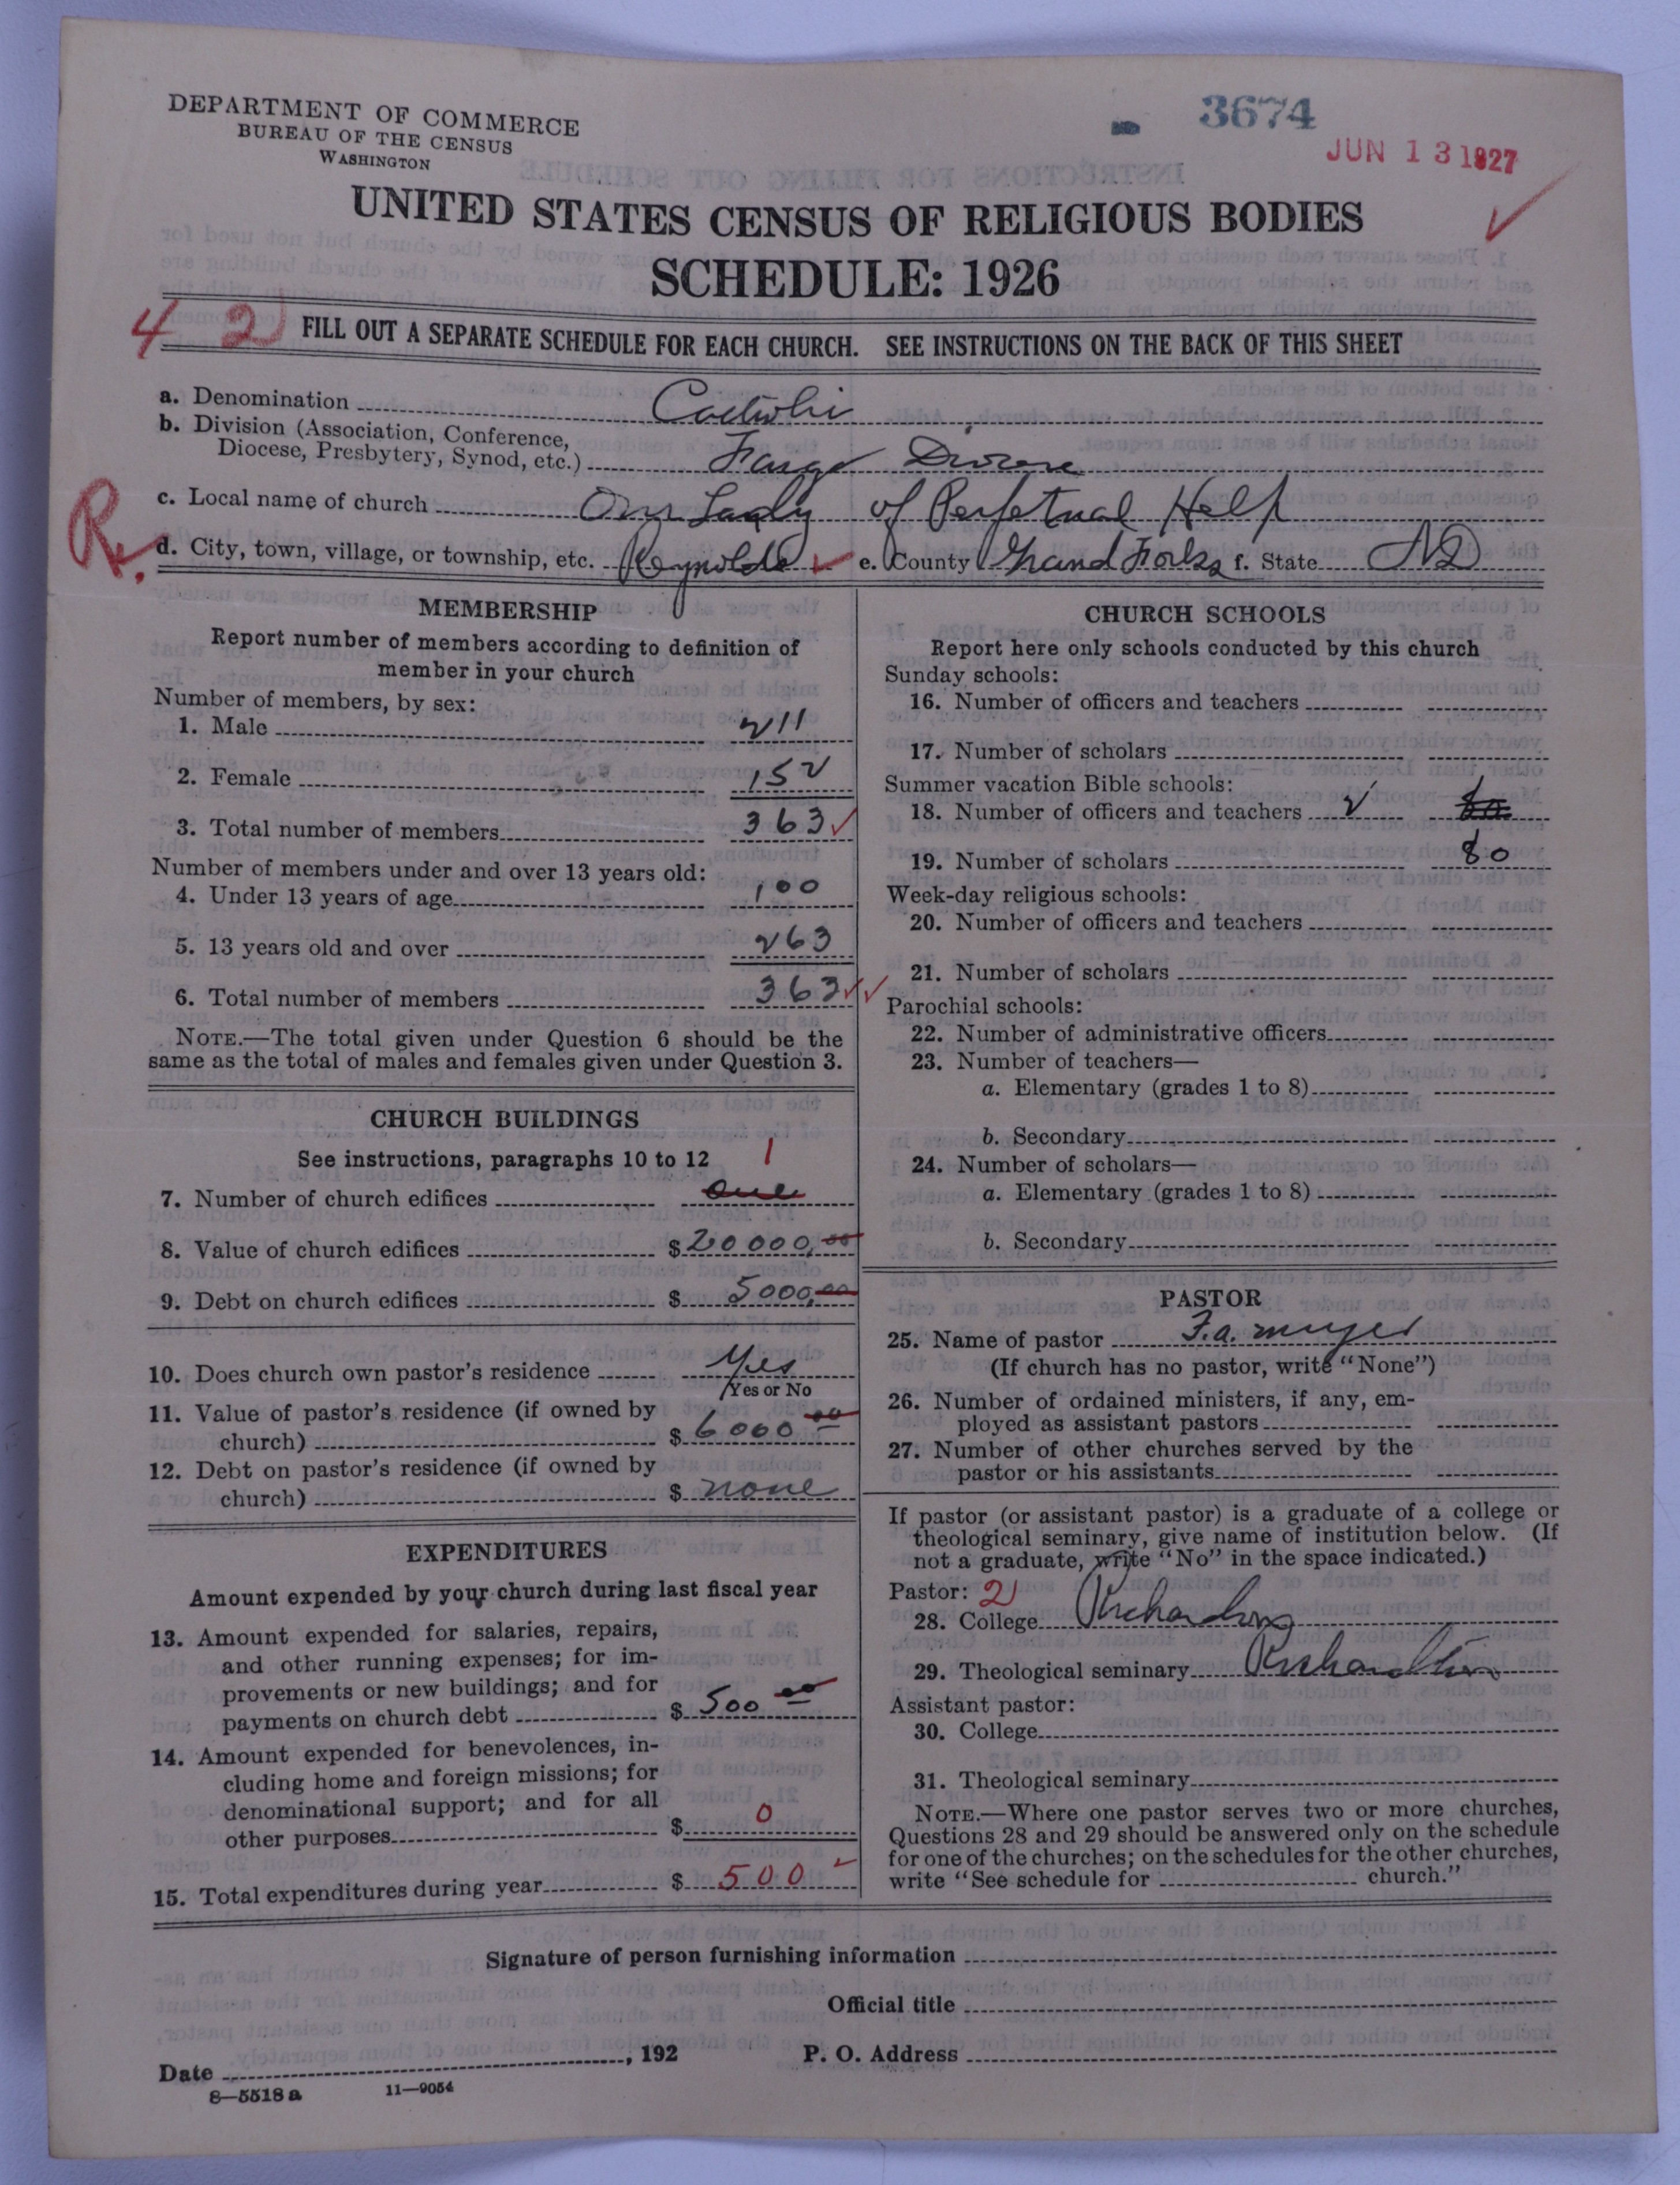 DEPARTMENT OF COMMERCE
BUREAU OF THE CENSUS
WASHINGTON
3674
JUN 13 1927
UNITED STATES CENSUS OF RELIGIOUS BODIES
SCHEDULE: 1926
4 2
FILL OUT A SEPARATE SCHEDULE FOR EACH CHURCH. SEE INSTRUCTIONS ON THE BACK OF THIS SHEET
a. Denomination Catholic
b. Division (Association, Conference,
Diocese, Presbytery, Synod, etc.) Fargo Diocese
c. Local name of church Our Lady of Perpetual Help
R.
d. City, town, village, or township, etc. Reynolds e. County Grand Forks f. State ND
MEMBERSHIP
Report number of members according to definition of
member in your church
Number of members, by sex:
1. Male 211
2. Female 152
3. Total number of members 363
Number of members under and over 13 years old:
4. Under 13 years of age 100
5. 13 years old and over 263
6. Total number of members 363
NOTE.—The total given under Question 6 should be the
same as the total of males and females given under Question 3.
CHURCH BUILDINGS
See instructions, paragraphs 10 to 12 1
7. Number of church edifices one
8. Value of church edifices $ 20000,00
9. Debt on church edifices $ 5000,00
10. Does church own pastor's residence Yes
Yes or No
11. Value of pastor's residence (if owned by
church) $ 6000 00
12. Debt on pastor's residence (if owned by
church) $ none
EXPENDITURES
Amount expended by your church during last fiscal year
13. Amount expended for salaries, repairs,
and other running expenses; for im-
provements or new buildings; and for
payments on church debt $ 500 00
14. Amount expended for benevolences, in-
cluding home and foreign missions; for
denominational support; and for all
other purposes $ 0
15. Total expenditures during year $ 500
CHURCH SCHOOLS
Report here only schools conducted by this church
Sunday schools:
16. Number of officers and teachers
17. Number of scholars
Summer vacation Bible schools:
18. Number of officers and teachers 2 80
19. Number of scholars 80
Week-day religious schools:
20. Number of officers and teachers
21. Number of scholars
Parochial schools:
22. Number of administrative officers
23. Number of teachers—
a. Elementary (grades 1 to 8)
b. Secondary
24. Number of scholars—
a. Elementary (grades 1 to 8)
b. Secondary
PASTOR
25. Name of pastor F.a.
(If church has no pastor, write "None")
26. Number of ordained ministers, if any, em-
ployed as assistant pastors
27. Number of other churches served by the
pastor or his assistants
If pastor (or assistant pastor) is a graduate of a college or
theological seminary, give name of institution below. (If
not a graduate, write "No" in the space indicated.)
Pastor: 2
28. College
29. Theological seminary
Assistant pastor:
30. College
31. Theological seminary
NOTE.—Where one pastor serves two or more churches,
Questions 28 and 29 should be answered only on the schedule
for one of the churches; on the schedules for the other churches,
write "See schedule for church."
Signature of person furnishing information
Official title
Date , 192 P. O. Address
8—5518a 11—9054